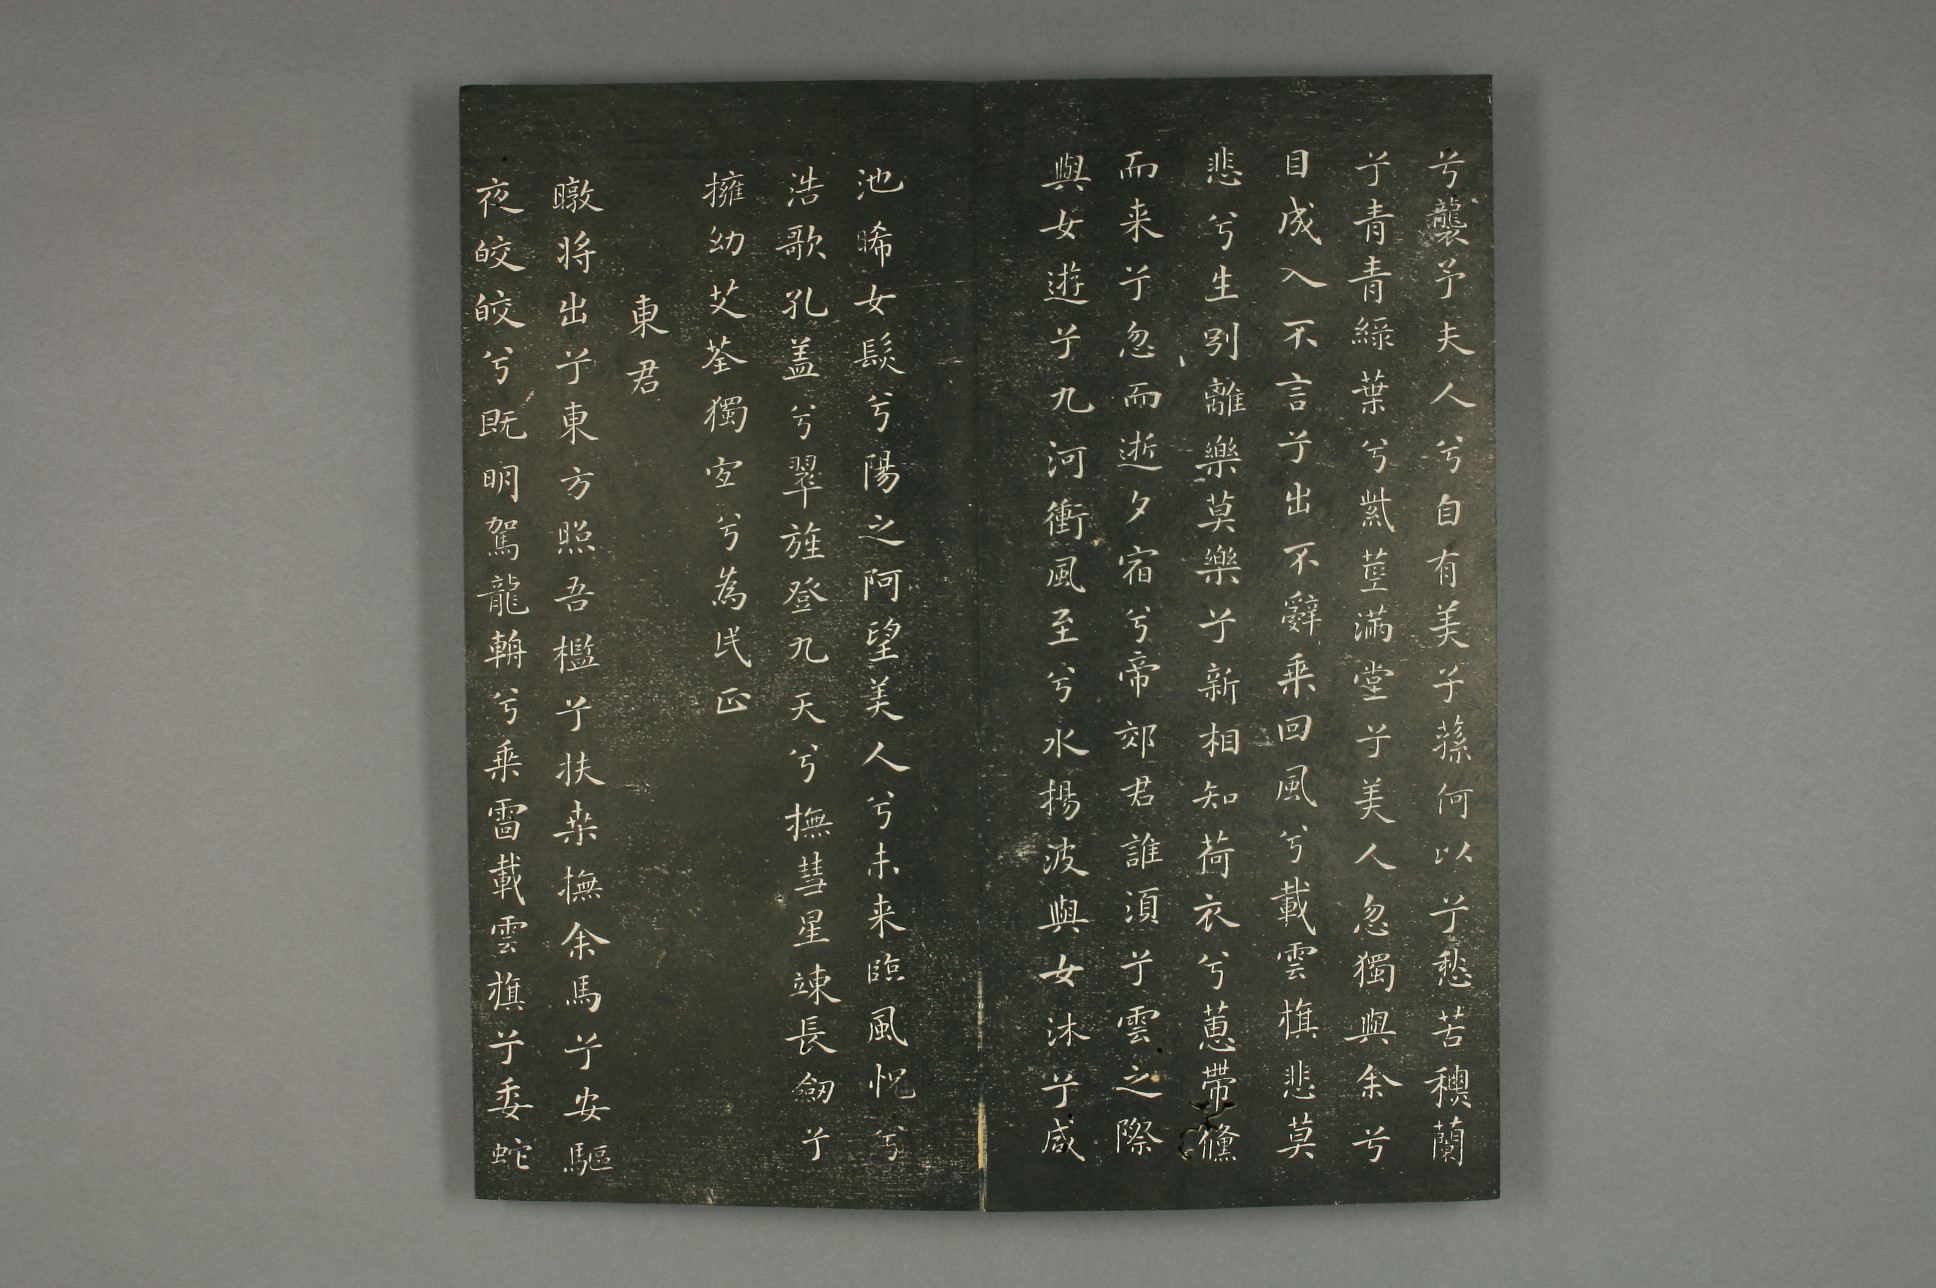 兮襲予夫人兮自有美子蓀何以兮愁苦穮蘭
兮青青綠葉兮紫莖滿堂兮美人忽獨與余兮
目成入不言兮出不辭乘回風兮載雲旗悲莫
悲兮生別離樂莫樂兮新相知荷衣兮蕙帶儵
而来兮忽而逝夕宿兮帝郊君誰須兮雲之際
與女遊兮九河衝風至兮水揚波與女沐兮咸
池晞女髮兮陽之阿望美人兮未来臨風怳兮
浩歌孔盖兮翠旌登九天兮撫彗星竦長劒兮
擁幼艾荃獨宜兮為民正
東君
暾將出兮東方照吾檻兮扶桑撫余馬兮安驅
夜皎皎兮既明駕龍輈兮乘雷載雲旗兮委蛇